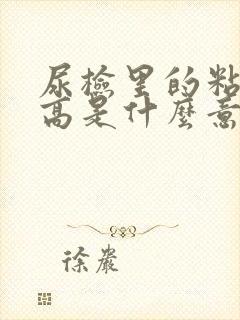 尿檢里的粘
高是什麼意
徐嚴